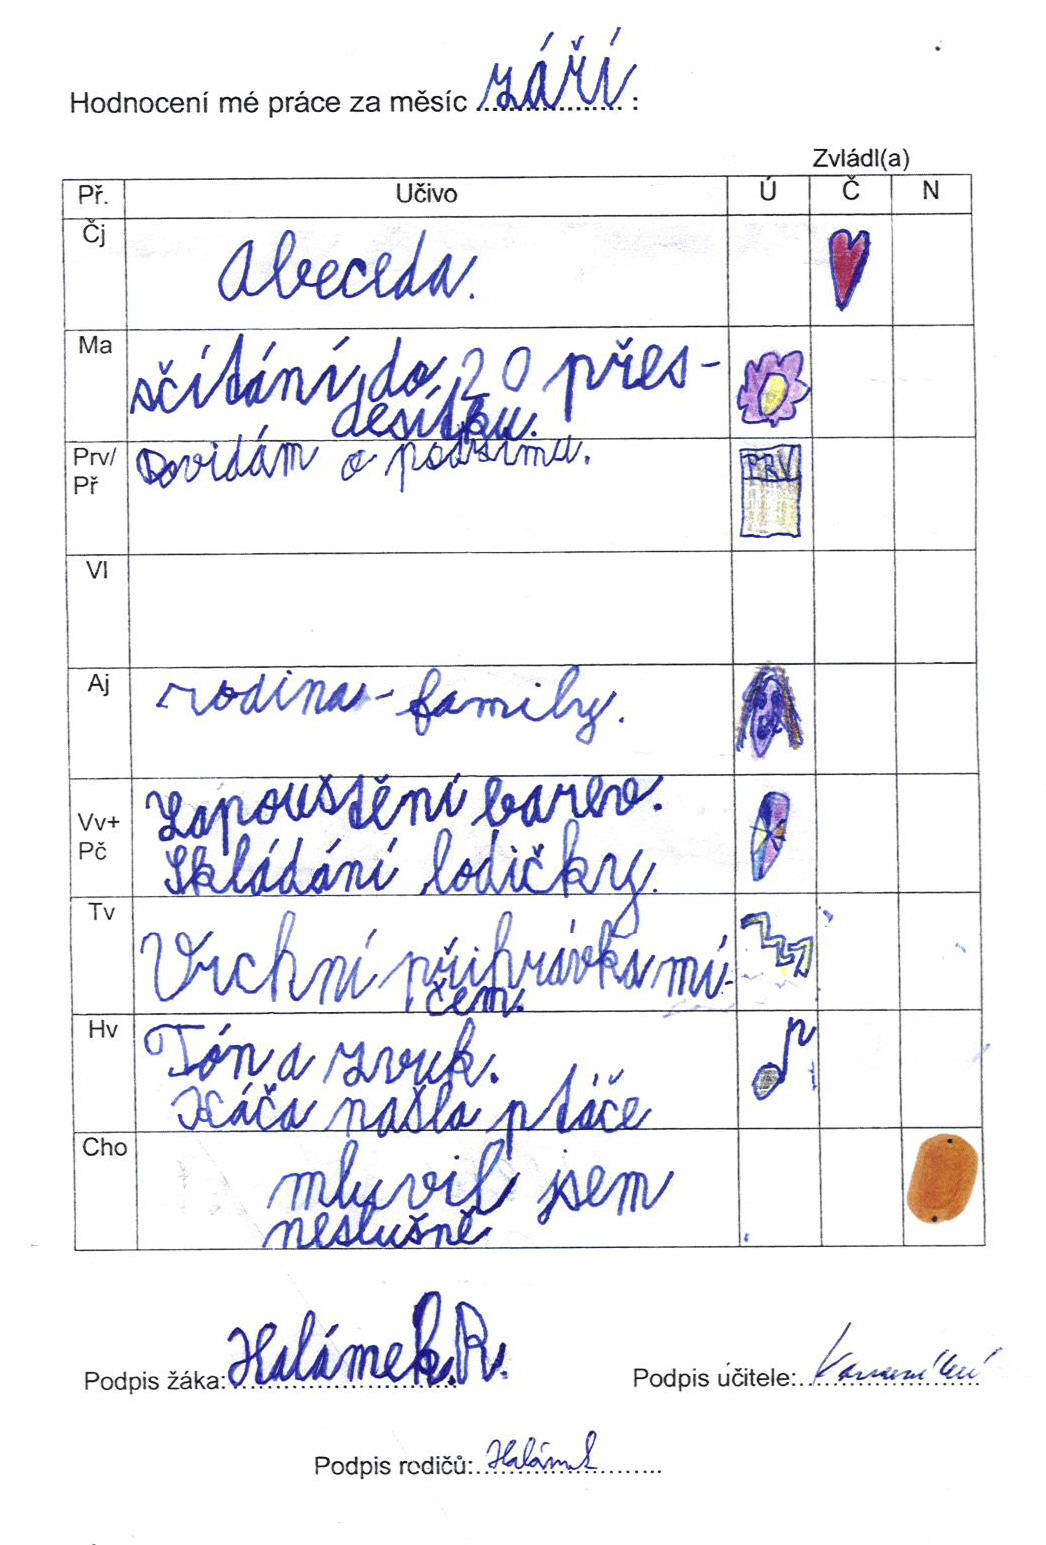 Hodnocení mé práce za měsíc září :
Zvládl(a)
Př. Učivo Ú Č N
Čj
Abeceda.
Ma
sčítání do 20 přes-
desítku.
Prv/
Př
Povídám o podzimu.
PRV
Vl
Aj
rodina - family.
Vv+
Pč
Zapouštění barev.
Skládání lodičky.
Tv
Vrchní přihrávka mí-
čem.
Hv
Tón a zvuk.
Káča našla ptáče
Cho
mluvil jsem
neslušně
Podpis žáka: Halámek.R.
Podpis učitele:
Podpis rodičů: Halámek